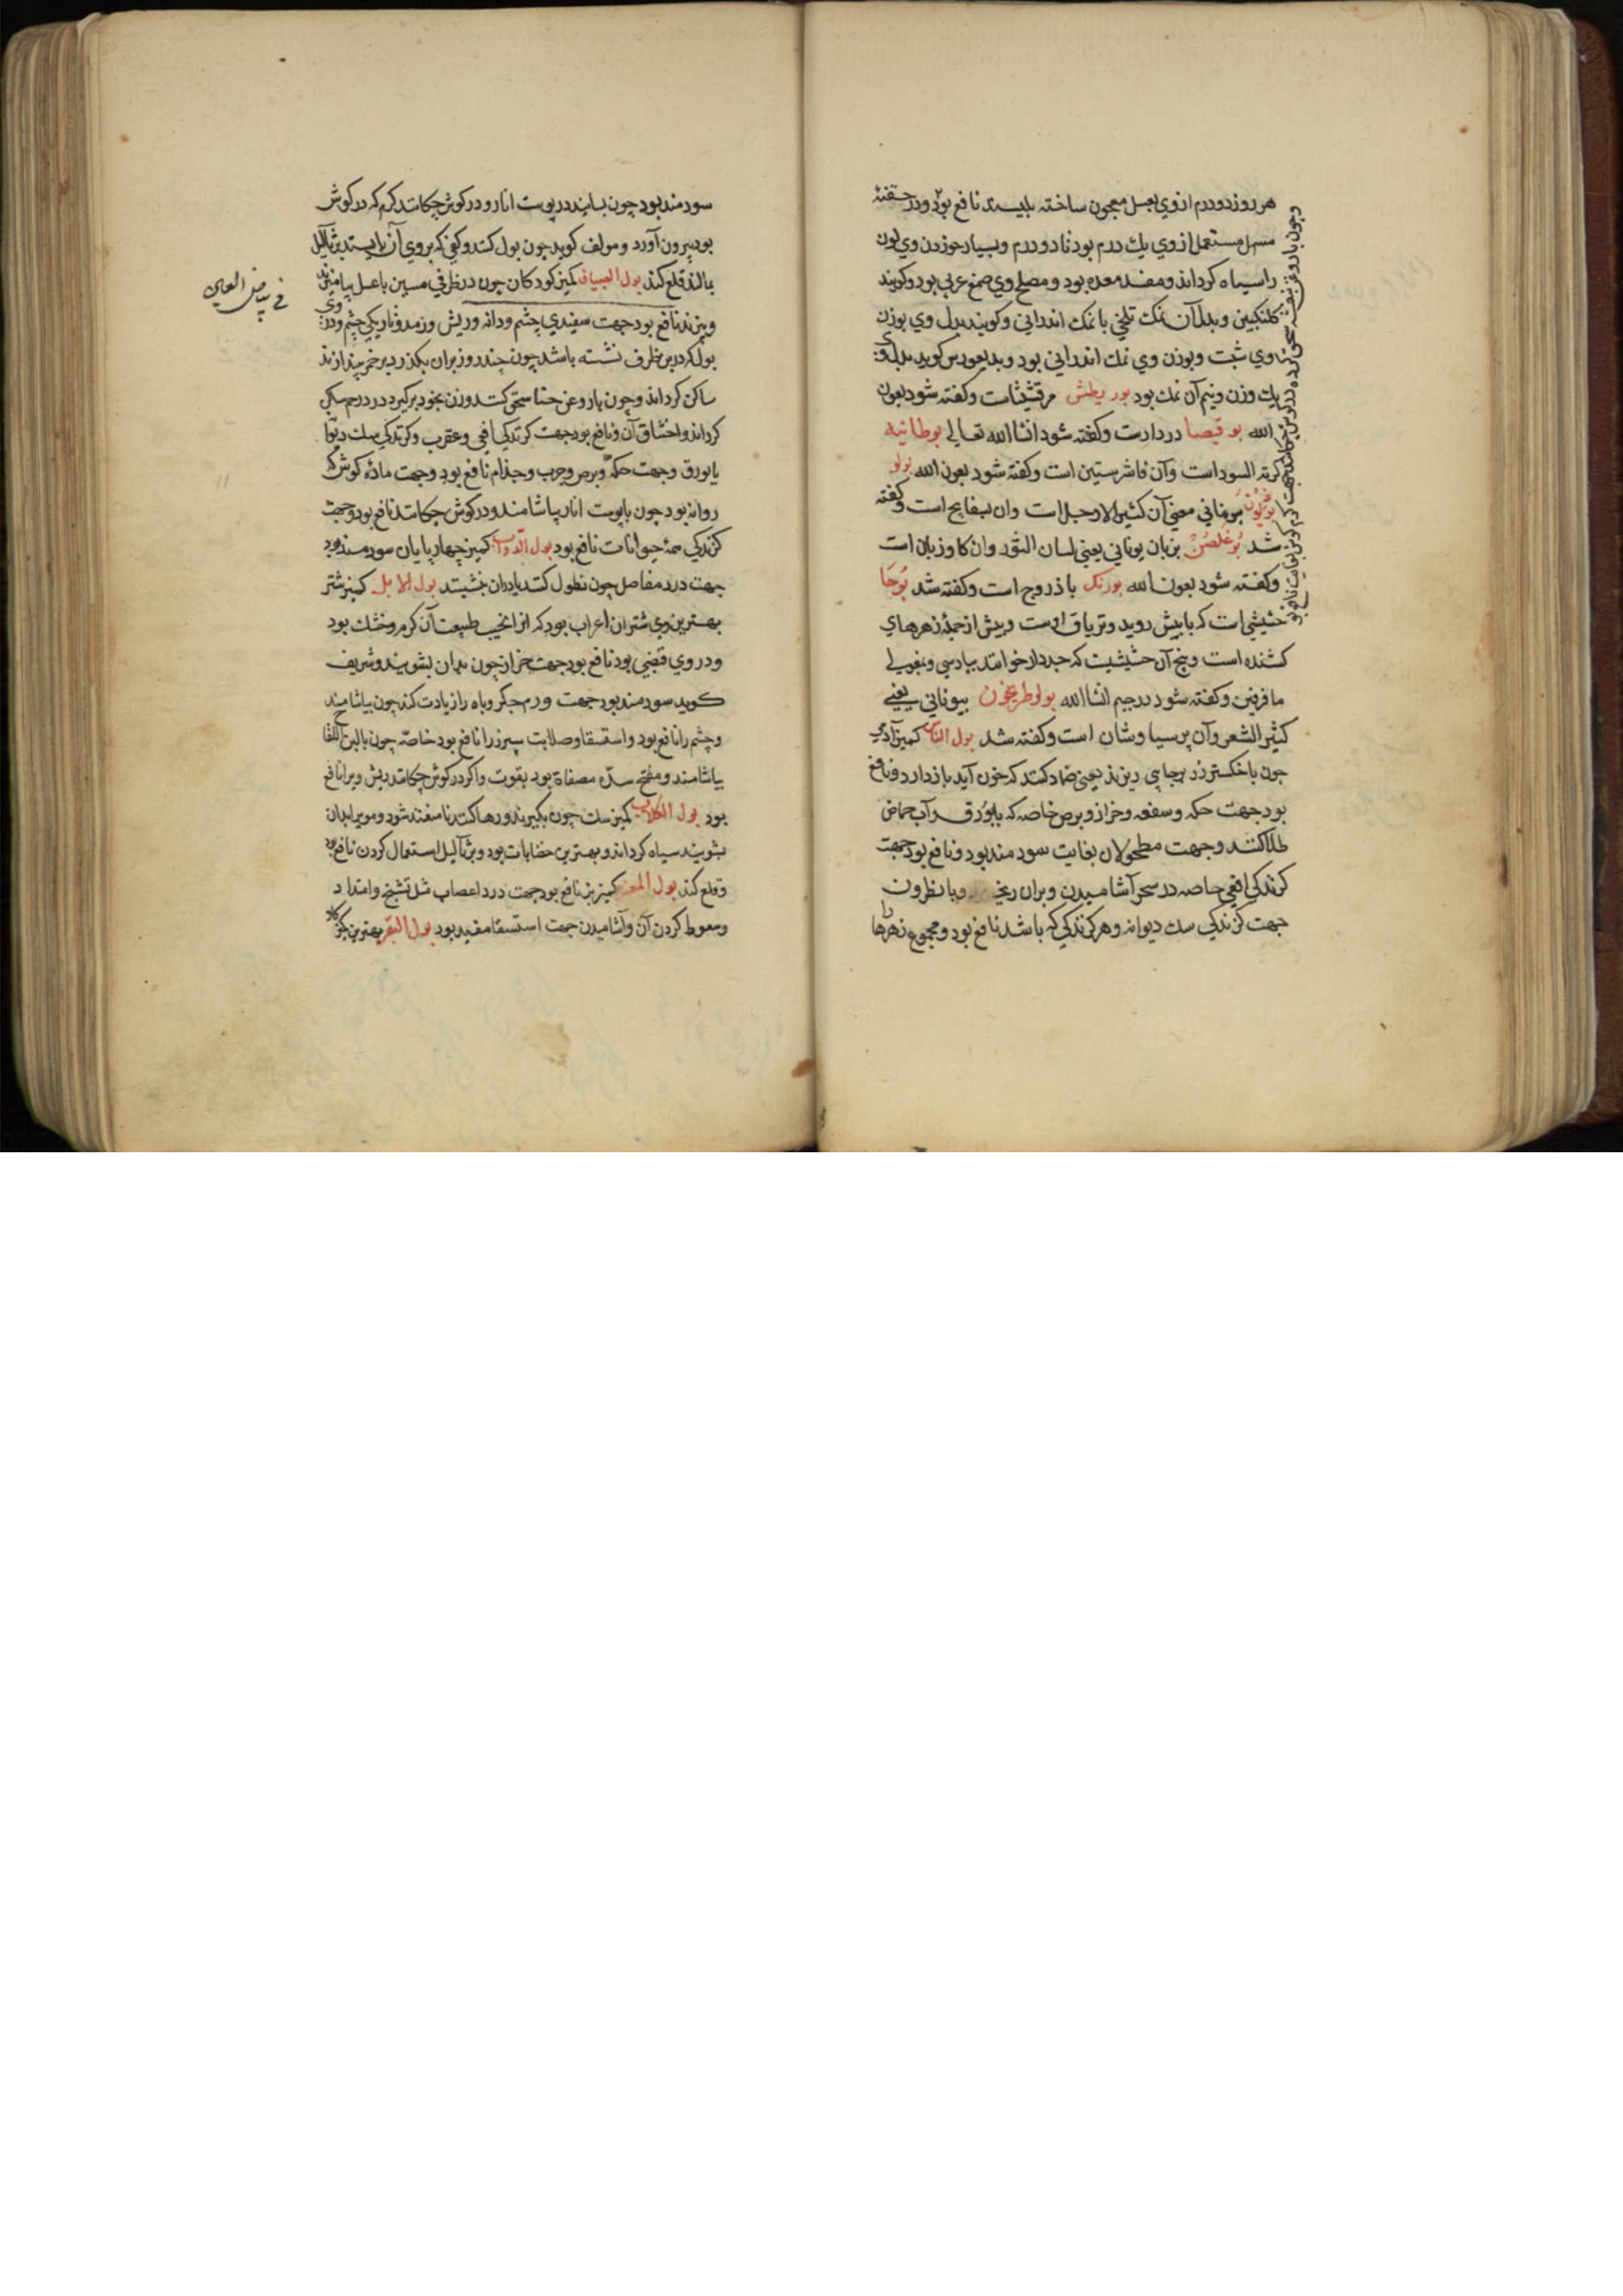 هر روز دو درم از وي بعسل معجون ساخته بليسند نافع بود و در حقنهٔ
مسهل مستعمل از وي يك درم بود تا دو درم و بسيار خوردن وي لون
را سياه كرداند و مفسد معده بود و مصلح وي صمغ عربي بود و كويند
كلنكبين و بدل آن نمك تلخي با نمك اندراني و كويند بدل وي بوزن
وي شبت و بوزن وي نمك اندراني بود و بديعورس كويد بدل وي
يك وزن و نيم آن نمك بود بوريطش مرقشيثاست و كفته شود بعون
الله بوقيصا درداراست و كفته شود انشا الله تعالي بوطانيه
كرمة السودا است و آن فاشرستين است و كفته شود بعون الله بولو
بوديون بيوناني معني آن كثير الارجل است وان بسفايج است و كفته
شد بوغلصن بزبان يوناني يعني لسان الثور وان كاوزبان است
و كفته شود بعون الله بورنك باذروج است و كفته شد بوحا
حشيشي است كه با بيش رويد و ترياق اوست و بيش از جملهٔ زهرهاي
كشنده است و بيخ آن حشيشيست كه جدوار خوانند بپارسي و بقولي
مافرفين و كفته شود در جيم انشا الله بولوطريخون بيوناني يعني
كثير الشعر و آن پرسياوشان است و كفته شد بول الناس كميز آدمي
چون با خاكستر رز بر جاي ريزند يعني ضماد كنند كه خون آيد باز دارد و نافع
بود جهت حكه و سعفه و حزاز و برص خاصه كه با بورق و آب حماض
طلا كنند و جهت مطحولان بغايت سودمند بود و نافع بود جهت
كزندكي افعي خاصه در سحر آشاميدن و بران ريختن و با نطرون
جهت كزندكي سك ديوانه و هر كزندكي كه باشد نافع بود و مجموع زهرها را
وچون با روغن بنفشه سحق كرده در كوش چكانند جهت كرم كوش بغايت نافع بود
سودمند بود چون بسايند در پوست انار و در كوش چكانند كرم كه در كوش
بود بيرون آورد و مولف كويد چون بول كنند و كفي كه بر وي آن بايستد بر ثاليل
بمالند قلع كند بول الصبيان كميز كودكان چون در ظرفي مسين با عسل بياميزند
و بپزند نافع بود جهت سفيدي چشم و دانه و ريش و رمد و تاريكي چشم و دردي
بول كه در بن ظرف نشسته باشد چون چند روز بران بكذرد بر خمر بپندازند
ساكن كرداند و چون با روغن حنا سحق كنند و زن بخود بركيرد درد رحم ساكن
كرداند و اختناق آن و نافع بود جهت كزندكي افعي و عقرب و كزندكي سك ديوانه
با بورق و جهت حكه و برص و جرب و جذام نافع بود و جهت ماده كوش كه
روانه بود چون با پوست انار بياشامند و در كوش چكانند نافع بود و جهت
كزندكي همهٔ حيوانات نافع بود بول الدواب كميز چهارپايان سودمند بود
جهت درد مفاصل چون نطول كنند يا دران نشينند بول الابل كميز شتر
بهترين وي شتران اعراب بود كه انرا نجيب طبيعت آن كرم و خشك بود
و در وي قبضي بود نافع بود جهت حزاز چون بدان بشويند و شريف
كويد سودمند بود جهت ورم جكر و باه را زيادت كند چون بياشامند
و چشم را نافع بود و استسقا و صلابت سپرز را نافع بود خاصه چون با لبن اللقاح
بياشامند و مفتح سده مصفاة بود بقوت و اكر در كوش چكانند ريش ويرا نافع
بود بول الكلاب كميز سك چون بكيرند و رها كنند تا متعفن شود و موي را بدان
بشويند سياه كرداند و بهترين خضابات بود و بر ثاليل استعمال كردن نافع بود
و قلع كند بول المعز كميز بز نافع بود جهت درد اعصاب مثل تشنج و امتداد
و سعوط كردن آن و آشاميدن جهت استسقا مفيد بود بول البقر بهترين كميز كاو
في بياض العين